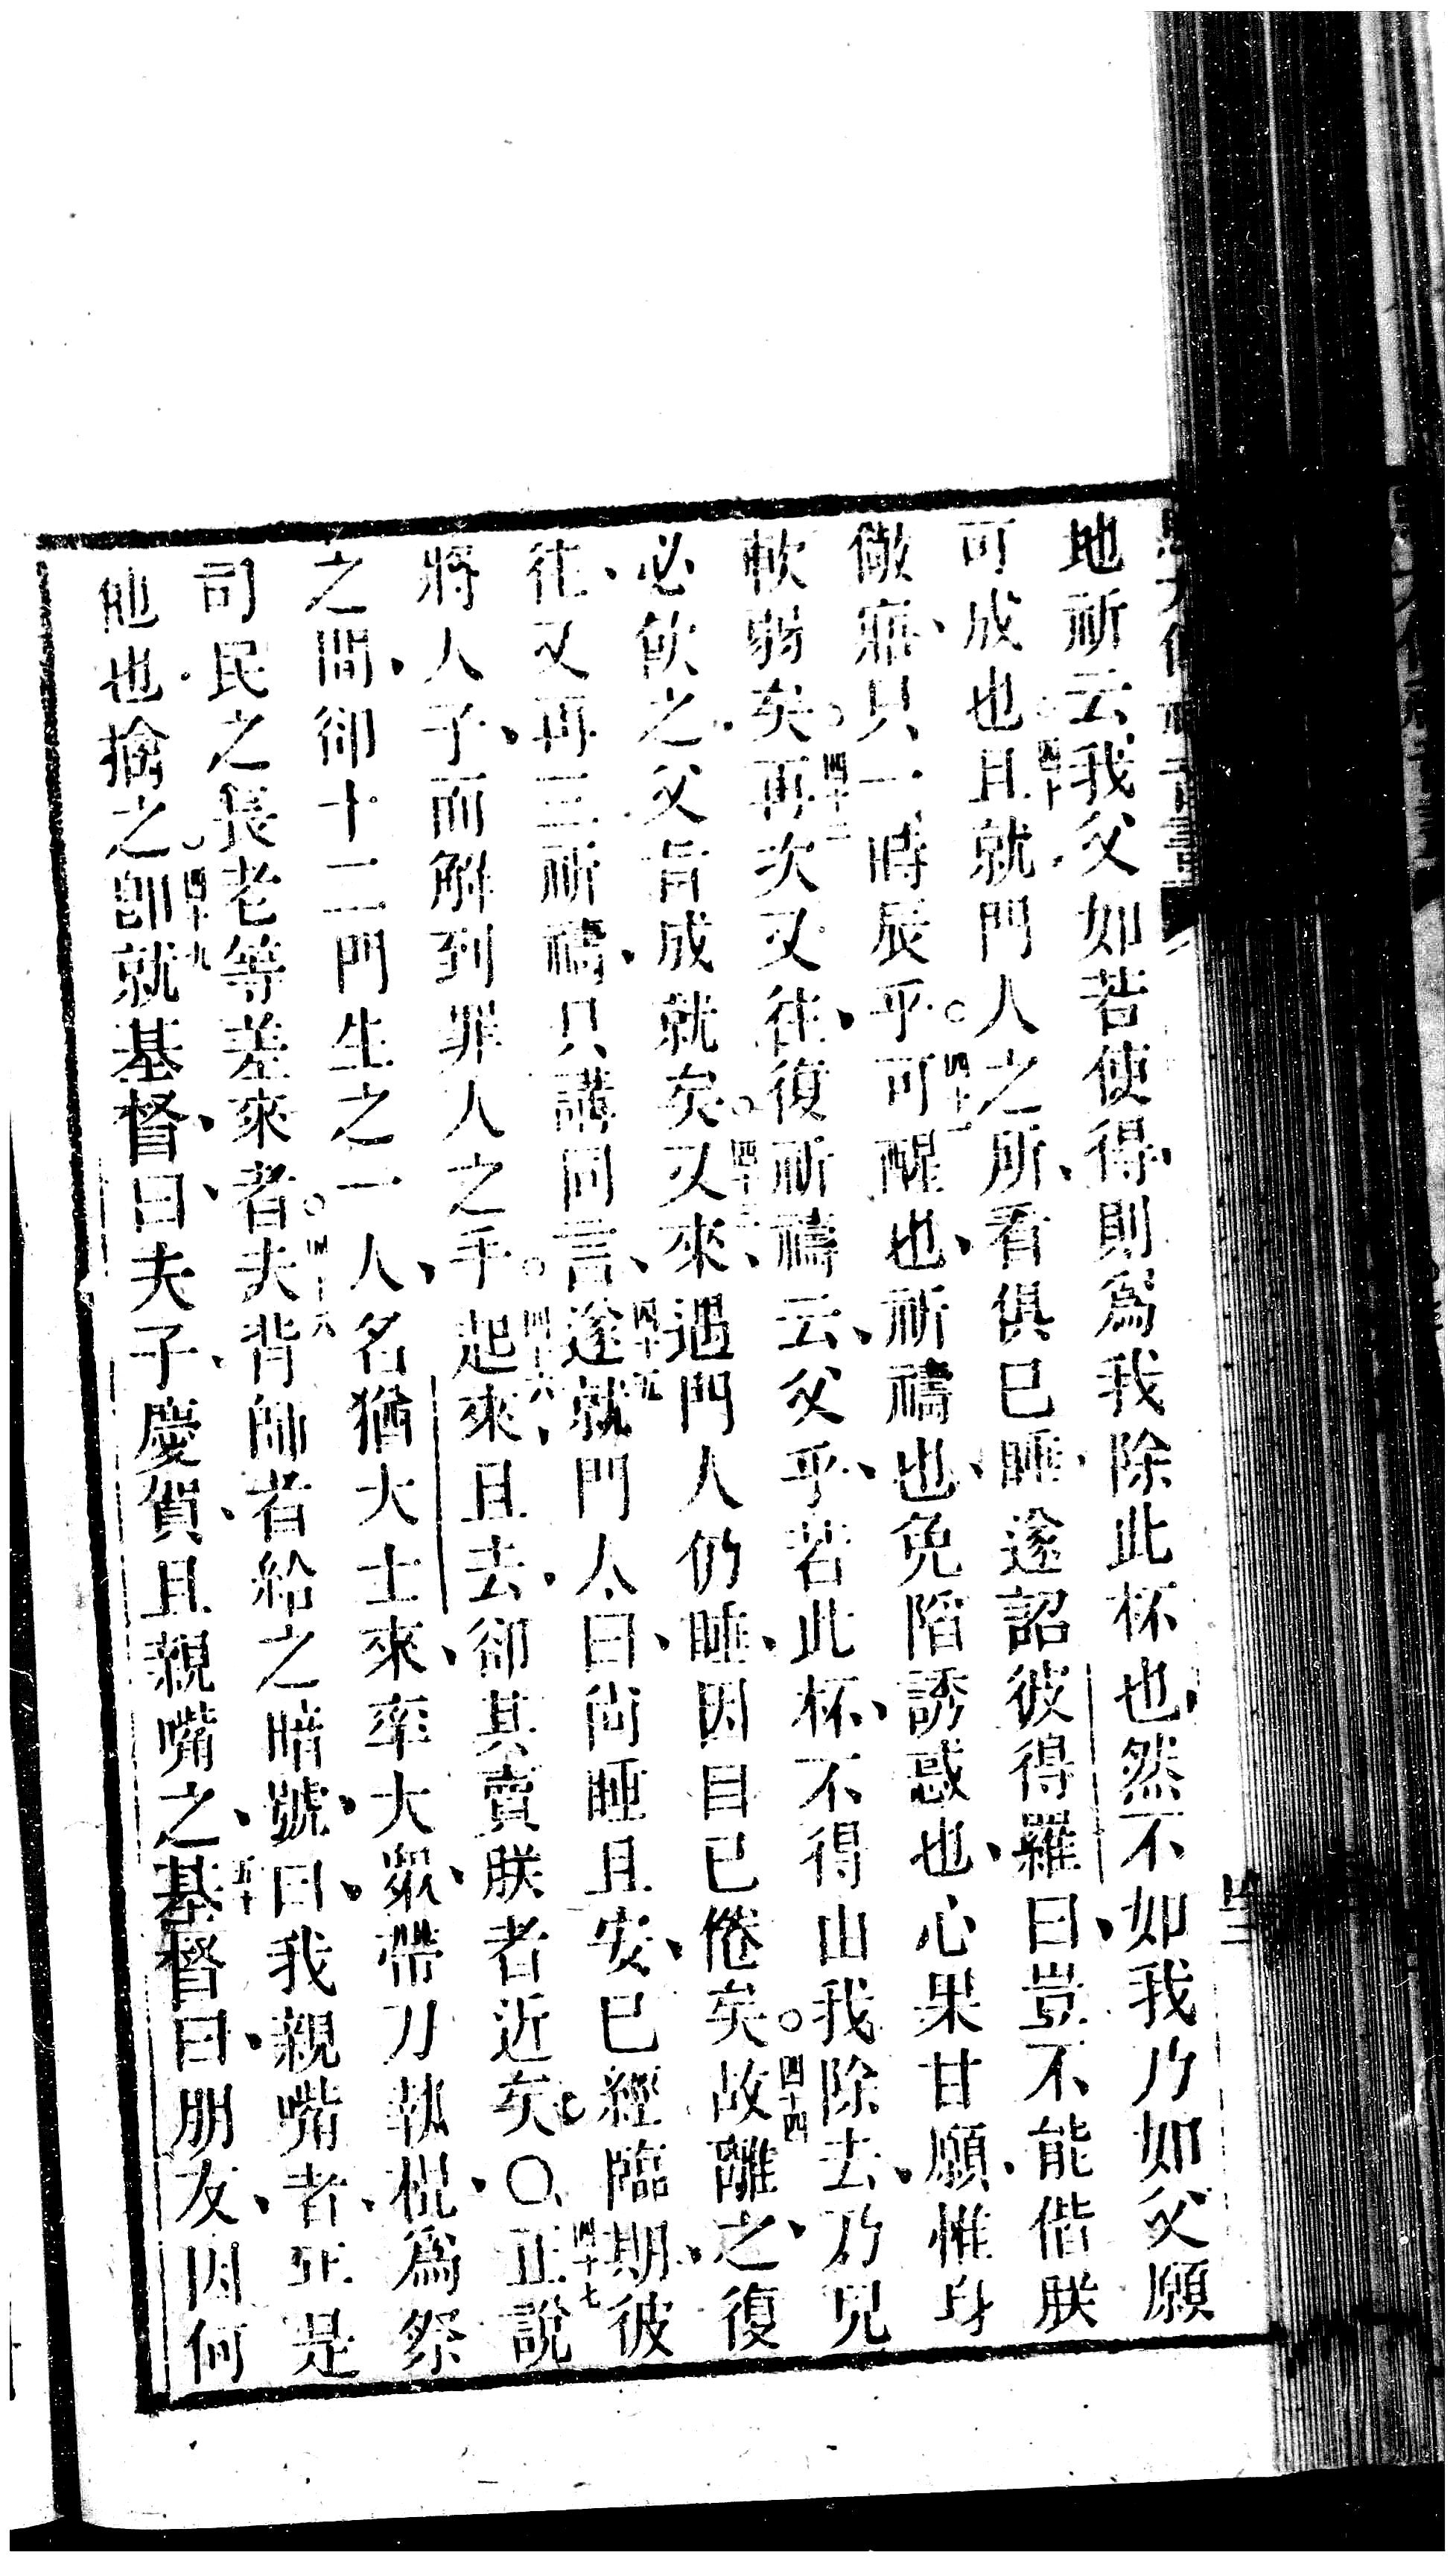 地祈云我父如若使得則爲我除此杯也然不如我乃如父願
可成也四十且就門人之所看俱已睡遂詔彼得羅曰豈不能偕朕
儆寤只一時辰乎四十一可醒也祈禱也免陷誘惑也心果甘願惟身
軟弱矣四十二再次又往復祈禱云父乎若此杯不得由我除去乃見
必飲之父旨成就矣四十三又來遇門人仍睡因目已倦矣四十四故離之復
往又再三祈禱只講同言四十五遂就門人曰尚睡且安已經臨期彼
將人子而解到罪人之手四十六起來且去卻其賣朕者近矣〇四十七正說
之間卻十二門生之一人名猶大士來率大眾帶刀執棍爲祭
司民之長老等差來者四十八夫背師者給之暗號曰我親嘴者正是
他也擒之四十九卽就基督曰夫子慶賀且親嘴之五十基督曰朋友因何